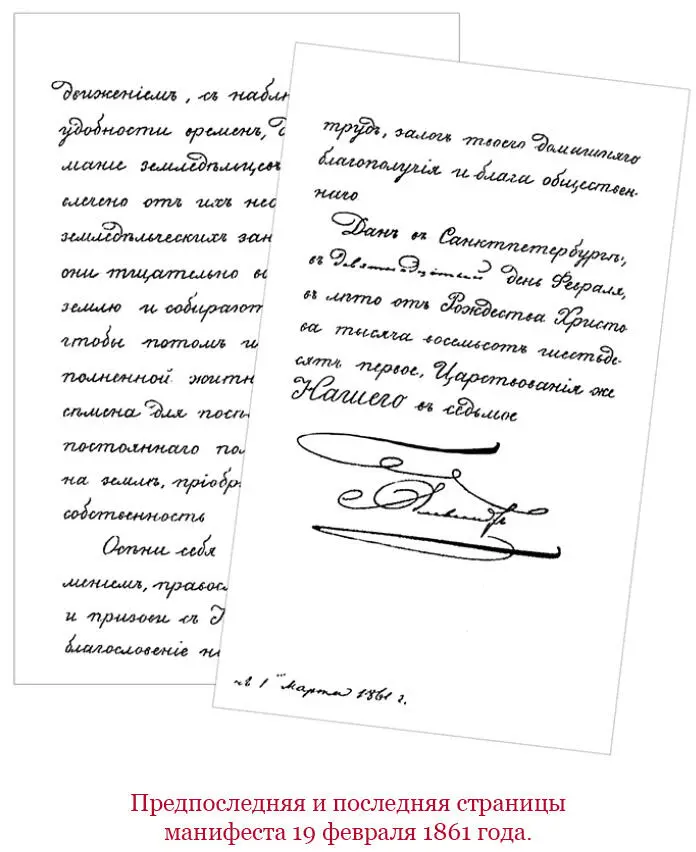 движенiемъ, съ наблю
удобности временъ,
манiе земледѣльцевъ
влечено отъ ихъ нео
земледѣльческихъ зан
они тщательно во
землю и собираютъ
чтобы потомъ и
полненной житн
сѣмена для посѣ
постояннаго по
на землѣ, прiобр
собственность
Осѣни себя
менiемъ, правосл
и призови съ Н
благословенiе н
трудъ, залогъ твоего домашняго
благополучiя и блага обществен-
наго
Данъ въ Санктпетербургѣ,
въ девятнадцатый день Февраля,
въ лѣто отъ Рождества Христо
ва тысяча восемьсотъ шестьде-
сятъ первое, Царствованiя же
Нашего въ седьмое
Александръ
1 Марта 1861 г.
Предпоследняя и последняя страницы
манифеста 19 февраля 1861 года.